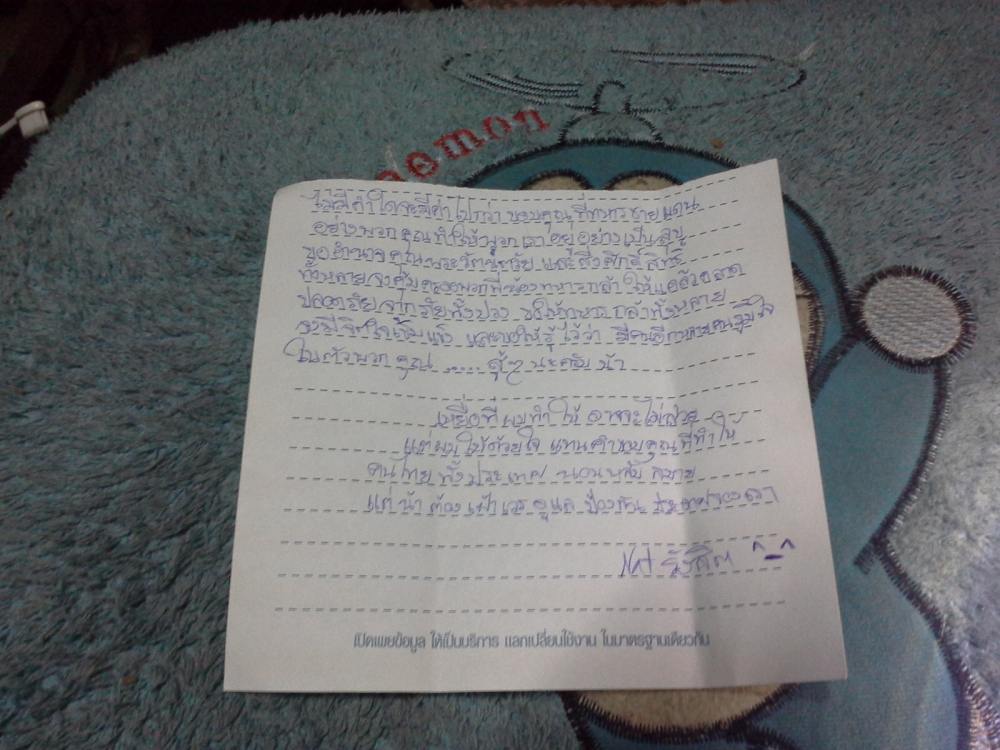 emon
ไม่มีคำใดจะมีค่าไปกว่า ขอบคุณที่ทหารชายแดน
อย่างพวกคุณทำให้พวกเราอยู่อย่างเป็นสุข
ขออำนาจคุณพระรัตนตรัย และสิ่งศักดิ์สิทธิ์
ทั้งหลายจงคุ้มครองพวกพี่น้องทหารกล้า ให้แคล้วคลาด
ปลอดภัยจากภัยทั้งปวง ขอให้ทหารกล้าทั้งหลาย
จงมีจิตใจเข้มแข็ง และขอให้รู้ไว้ว่า มีคนอีกหลายคนภูมิใจ
ในตัวพวกคุณ ..... สู้ๆ นะครับ น้า
เหยื่อที่ผมทำให้ อาจจะไม่สวย
แต่ผมให้ด้วยใจ แทนคำขอบคุณที่ทำให้
คนไทยทั้งประเทศ นอนหลับสบาย
แต่น้าต้องเฝ้าเวร ดูแล ป้องกัน ประเทศของเรา
รังสิต ^_^
เปิดเผยข้อมูล ใต้เป็นบริการ แลกเปลี่ยนใช้งาน ในมาตรฐานเดียวกัน